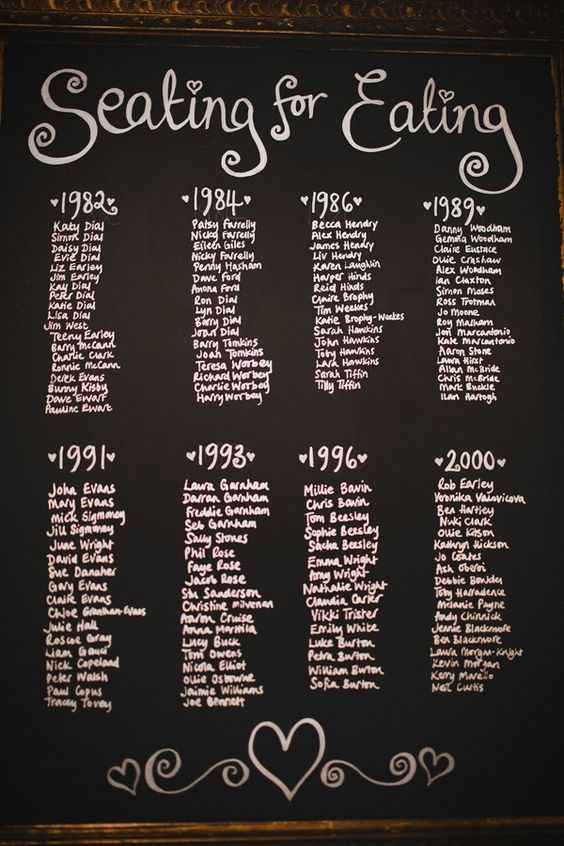 Seating for Eating
1982
Katy Dial
Simon Dial
Daisy Dial
Evie Dial
Liz Earley
Jim Earley
Kay Dial
Peter Dial
Katie Dial
Lisa Dial
Jim West
Teeny Earley
Barry McCann
Charlie Clark
Ronnie McCann
Derek Evans
Bunny Kisby
Dave Ewart
Pauline Ewart
1984
Patsy Farrelly
Nicky Farrelly
Eileen Giles
Nicky Farrelly
Penny Hasham
Dave Ford
Anona Ford
Ron Dial
Lyn Dial
Barry Dial
Joan Dial
Barry Tomkins
Joan Tomkins
Teresa Worbey
Richard Worbey
Charlie Worbey
Harry Worbey
1986
Becca Hendry
Alex Hendry
James Hendry
Liv Hendry
Karen Laughlin
Harper Hinds
Reid Hinds
Claire Brophy
Tim Weekes
Katie Brophy-Weekes
Sarah Hawkins
John Hawkins
Toby Hawkins
Lara Hawkins
Sarah Tiffin
Tilly Tiffin
1989
Danny Woodham
Gemma Woodham
Claire Eustace
Ollie Crashaw
Alex Woodham
Ian Claxton
Simon Moses
Ross Trotman
Jo Moone
Roy Malham
Jon Marcantonio
Kate Marcantonio
Aaron Stone
Laura Hirst
Allan McBride
Chris McBride
Mark Buckle
Ilan Hartogh
1991
John Evans
Mary Evans
Mick Sigmmey
Jill Sigmmey
June Wright
David Evans
Sue Danaher
Gary Evans
Claire Evans
Chloe Grantham-Evans
Julie Hall
Roscoe Gray
Liam Gauci
Nick Copeland
Peter Walsh
Paul Copus
Tracey Tovey
1993
Laura Garnham
Darran Garnham
Freddie Garnham
Seb Garnham
Sally Stones
Phil Rose
Faye Rose
Jacob Rose
Stu Sanderson
Christine
Aaron Cruise
Anna
Lucy Buck
Tom Owens
Nicola Elliot
Ollie Osborne
Jaimie Williams
Joe Bennett
1996
Millie Bavin
Chris Bavin
Tom Beesley
Sophie Beesley
Sacha Beesley
Emma Wright
Amy Wright
Nathalie Wright
Claudia Carter
Vikki Trister
Emily White
Luke Burton
Petra Burton
William Burton
Sofia Burton
2000
Rob Earley
Veronika
Ben Hartley
Nicki Clark
Ollie Kitson
Kathryn Hickson
Jo Coates
Ash Oberoi
Debbie Bowden
Toby Harradence
Melanie Payne
Andy Chinnick
Jennie Blackmore
Ben Blackmore
Laura Morgan-Knight
Kevin Morgan
Kerry Marello
Neil Curtis